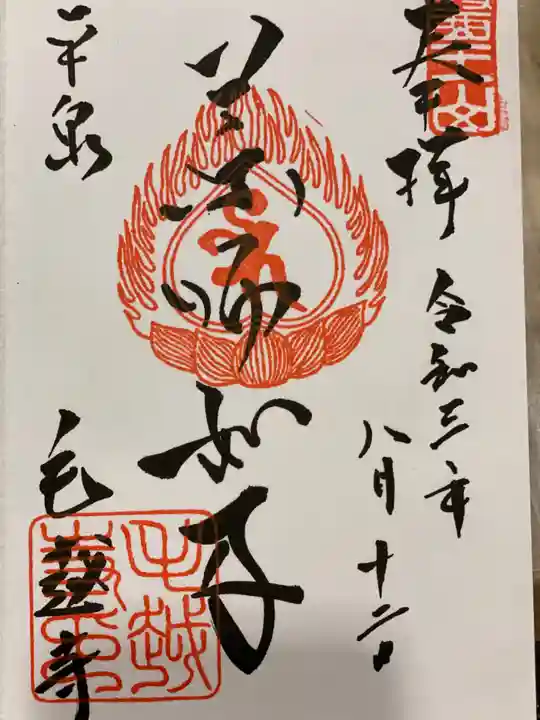 奉拝
令和三年
八月十二日
薬師如来
平泉
毛越寺